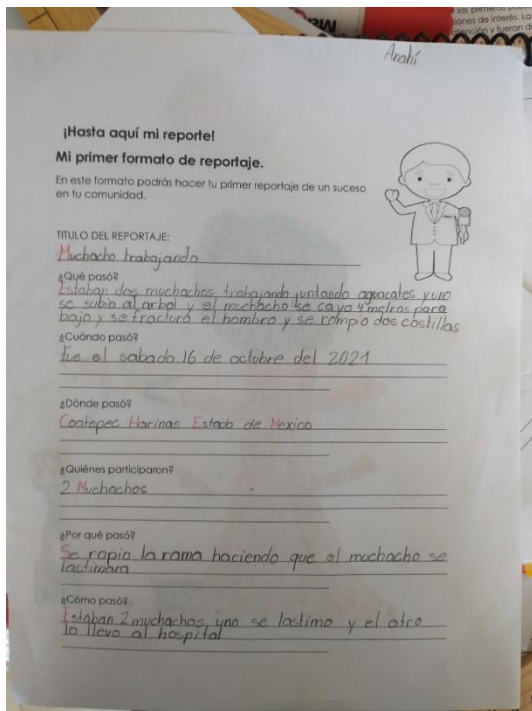 las primeras
iones de interés. La
atención y fueran d
Anahí
¡Hasta aquí mi reporte!
Mi primer formato de reportaje.
En este formato podrás hacer tu primer reportaje de un suceso
en tu comunidad.
TITULO DEL REPORTAJE:
Muchacho trabajando
¿Qué pasó?
Estaban dos muchachos trabajando juntando aguacates y uno
se subio al arbol y el muchacho se cayo 4 metros para
bajo y se fracturó el hombro y se rompio dos costillas
¿Cuándo pasó?
fue el sabado 16 de octubre del 2021
¿Dónde pasó?
Coatepec Harinas Estado de Mexico
¿Quiénes participaron?
2 Muchachos
¿Por qué pasó?
Se ropio la rama haciendo que el muchacho se
lactimara
¿Cómo pasó?
Estaban 2 muchachos, uno se lastimo y el otro
lo llevo al hospital